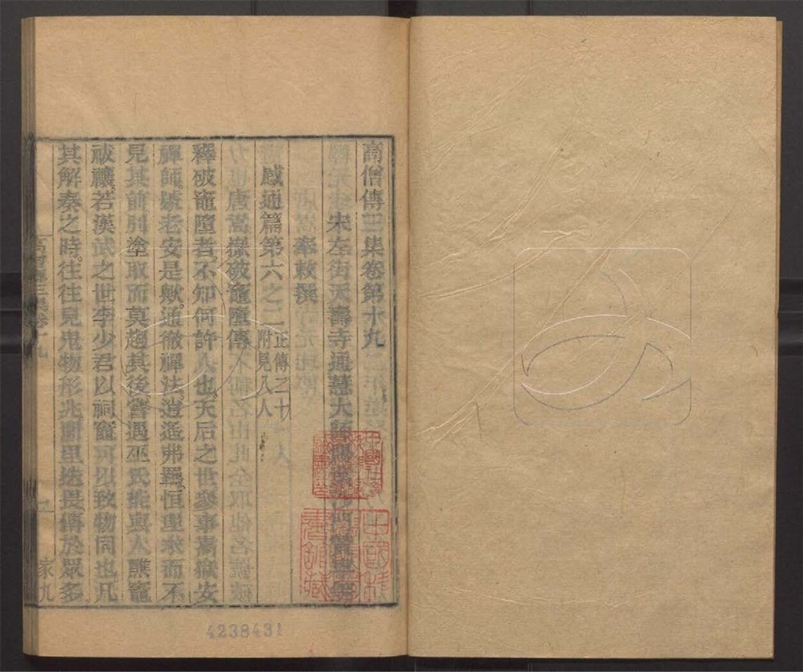 高僧傳三集卷第十九
宋左街天壽寺通慧大師賜紫沙門贊寧
奉敕撰
感通篇第六之二 正傳二十一人 附見八人
唐嵩嶽破竈墮傳
釋破竈墮者不知何許人也天后之世參事嵩嶽安
禪師號老安是歟通徹禪法逍遙弗羈恒理求而不
見其前所塗取而莫趨其後嘗遇巫氏能與人醮竈
祓禳若漢武之世李少君以祠竈可以致物同也凡
其解奏之時往往見鬼物形兆閭里迭畏傳於眾多
高僧傳三集卷十九
家九
4238431